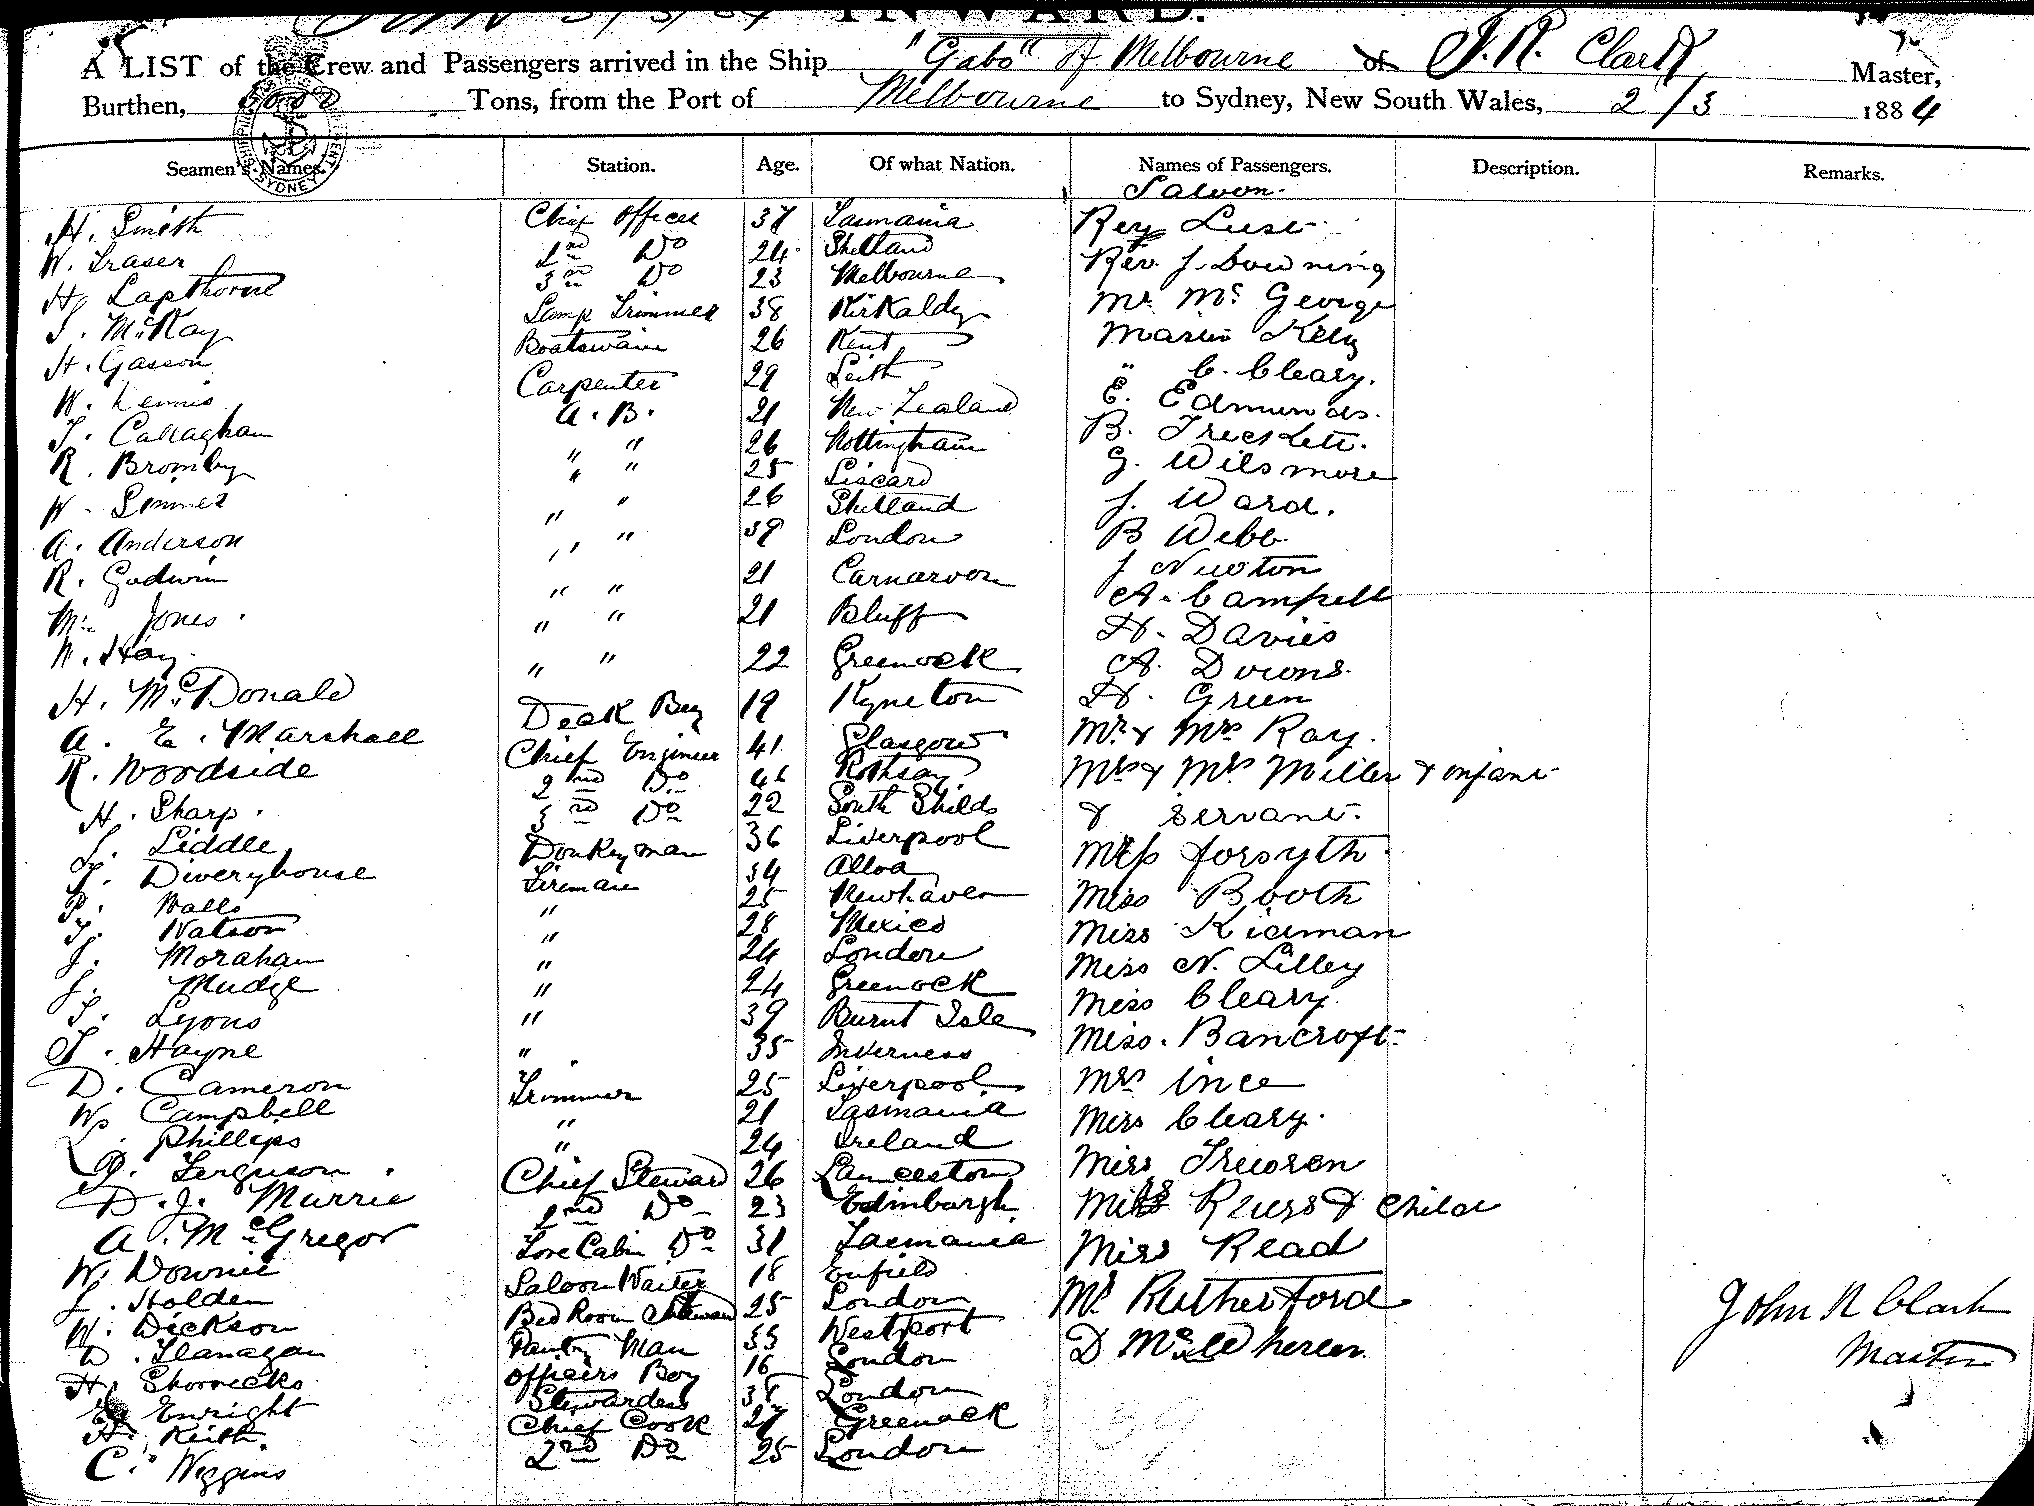 INWARD.
A LIST of the Crew and Passengers arrived in the Ship "Gabo" of Melbourne of J. R. Clark Master,
Burthen, Tons, from the Port of Melbourne to Sydney, New South Wales, 2/3 1884
Seamen's Names. Station. Age. Of what Nation. Names of Passengers. Description. Remarks.
Saloon.
H. Smith Chief Officer 37 Tasmania Rev
W. Fraser 2nd Do 24 Shetland Rev. J. Downing
H. Lapthorne 3rd Do 23 Melbourne Mr Mc George
J. McKay Lamp Trimmer 38 Kirkaldy Martin Kelly
H. Gasson Boatswain 26 Kent " C. Cleary.
W. Dennis Carpenter 29 Leith E. Edmunds.
T. Callaghan A.B. 21 New Zealand B.
R. Bromley " " 26 Nottingham G. Wilsmore
W. Simmer " " 25 Liscard J. Ward.
A. Anderson " " 26 Shetland B Webb
R. Godwin " " 39 London J Newton
M. Jones " " 21 Carnarvon A. Campbell
W. Hay " " 21 Bluff H. Davies
H. McDonald " " 22 Greenock A. Downs.
A. E. Marshall Deck Boy 19 Kyneton H. Green
R. Woodside Chief Engineer 41 Glasgow Mr & Mrs Ray.
H. Sharp 2nd Do 46 Rothsay Mr & Mrs Miller & infant
J. Liddle 3rd Do 22 South Shilds & Servant.
J. Diveryhouse Donkeyman 36 Liverpool Miss Forsyth
P. Walls Fireman 34 Alloa Miss Booth
T. Watson " 25 Newhaven Miss Kiernan
J. Morahan " 28 Mexico Miss N. Lilley
J. Mudge " 24 London Miss Cleary.
T. Lyons " 24 Greenock Miss. Bancroft
T. Hayne " 39 Burnt Isle Mrs Ince
D. Cameron " 35 Inverness Miss Cleary.
W. Campbell Trimmer 25 Liverpool Miss Trewren
L. Phillips " 21 Tasmania Miss & Child
D. Ferguson " 24 Ireland Miss Read
D. J. Murrie Chief Steward 26 Launceston Mr Rutherford
A. McGregor 2nd Do 23 Edinburgh D
W. Downie Fore Cabin Do 31 Tasmania
J. Holden Saloon Waiter 18 Enfield
W. Dickson Bed Room Steward 25 London
D. Flanagan Pantry Man 33 Westport
H. Shorrocks Officers Boy 16 London
E. Enright Stewardess 38 London
A. Keith. Chief Cook 27 Greenock
C. Wiggins 2nd Do 25 London
John R Clark
Master